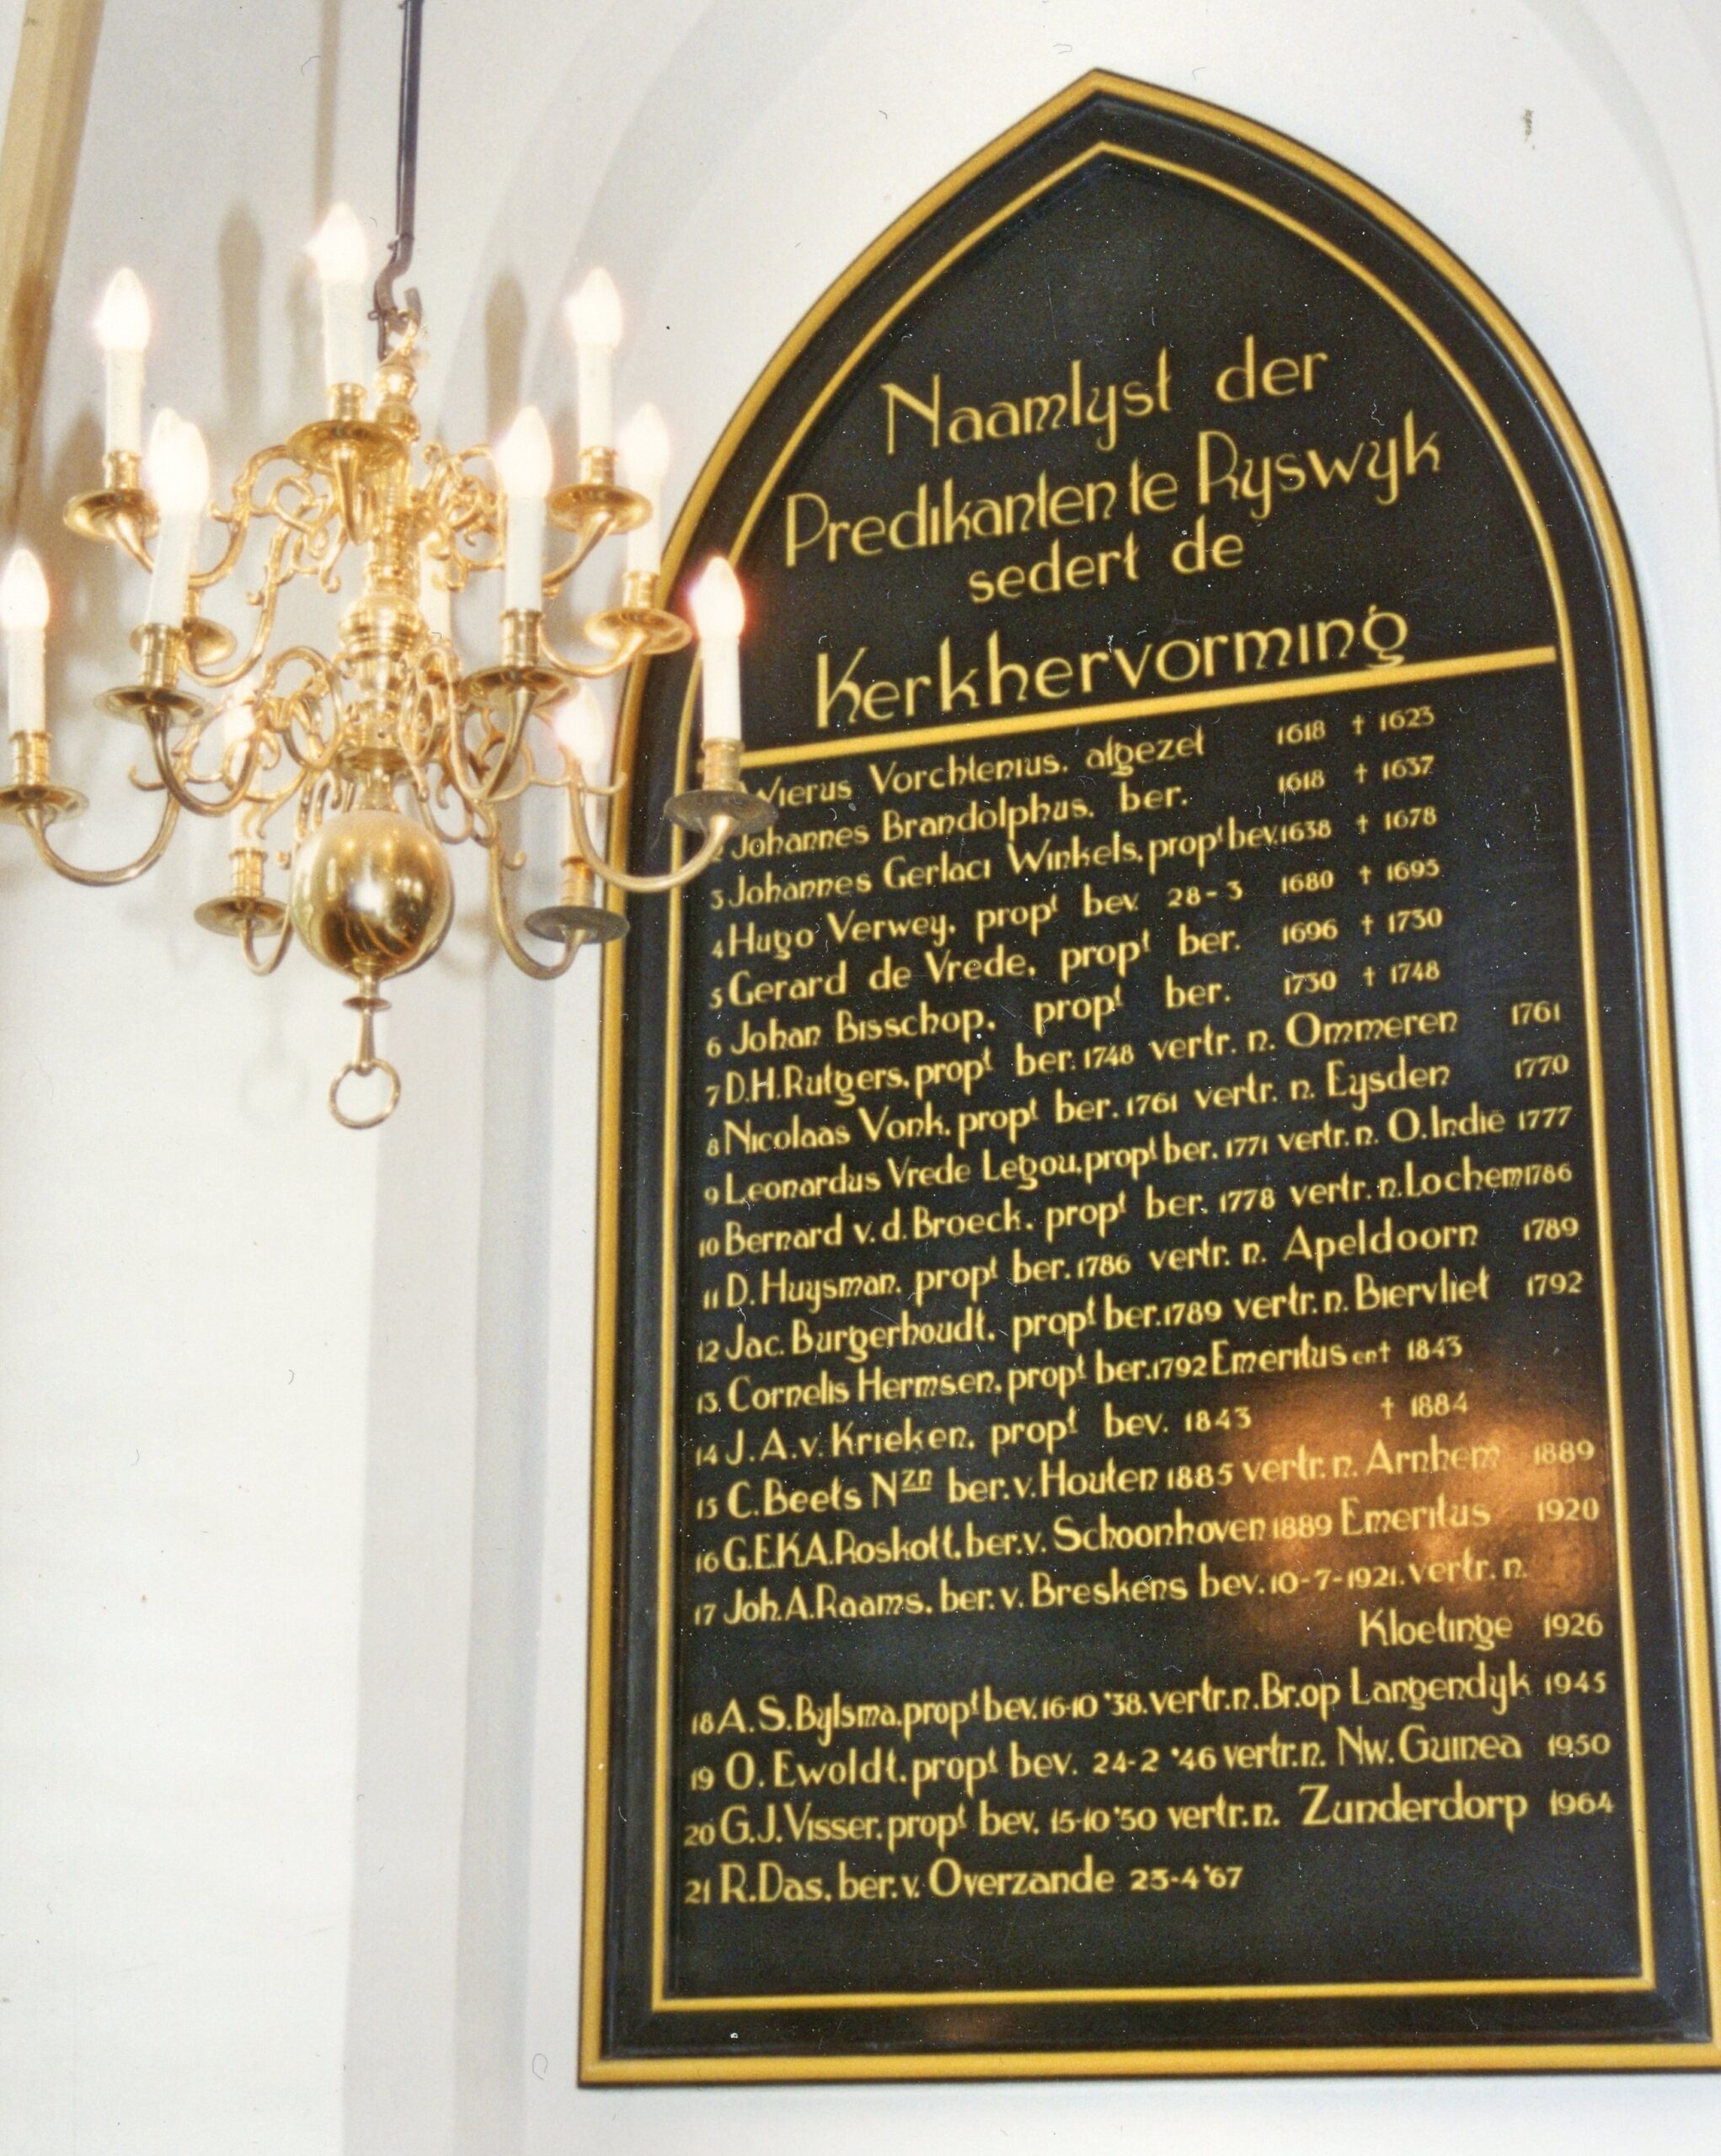 Naamlyst der
Predikanten te Ryswyk
sedert de
Kerkhervorming
Wierus Vorchtenius. afgezet 1618 † 1623
2 Johannes Brandolphus. ber. 1618 † 1637
3 Johannes Gerlaci Winkels. propt bev. 1638 † 1678
4 Hugo Verwey. propt bev. 28-3 1680 † 1695
5 Gerard de Vrede. propt ber. 1696 † 1730
6 Johan Bisschop. propt ber. 1730 † 1748
7 D.H. Rutgers. propt ber. 1748 vertr. n. Ommeren 1761
8 Nicolaas Vonk. propt ber. 1761 vertr. n. Eysden 1770
9 Leonardus Vrede Legou. propt ber. 1771 vertr. n. O. Indië 1777
10 Bernard v. d. Broeck. propt ber. 1778 vertr. n. Lochem 1786
11 D. Huysman. propt ber. 1786 vertr. n. Apeldoorn 1789
12 Jac. Burgerhoudt. propt ber. 1789 vertr. n. Biervliet 1792
13. Cornelis Hermsen. propt ber. 1792 Emeritus en † 1843
14 J. A. v. Krieken. propt bev. 1843 † 1884
15 C. Beets Nzn ber. v. Houten 1885 vertr. n. Arnhem 1889
16 G.E.K.A. Roskott. ber. v. Schoonhoven 1889 Emeritus 1920
17 Joh. A. Raams. ber. v. Breskens bev. 10-7-1921. vertr. n.
Kloetinge 1926
18 A. S. Bylsma. propt bev. 16-10 '38. vertr. n. Br. op Langendyk 1945
19 O. Ewoldt. propt bev. 24-2 '46 vertr. n. Nw. Guinea 1950
20 G.J. Visser. propt bev. 15-10 '50 vertr. n. Zunderdorp 1964
21 R. Das. ber. v. Overzande 23-4 '67